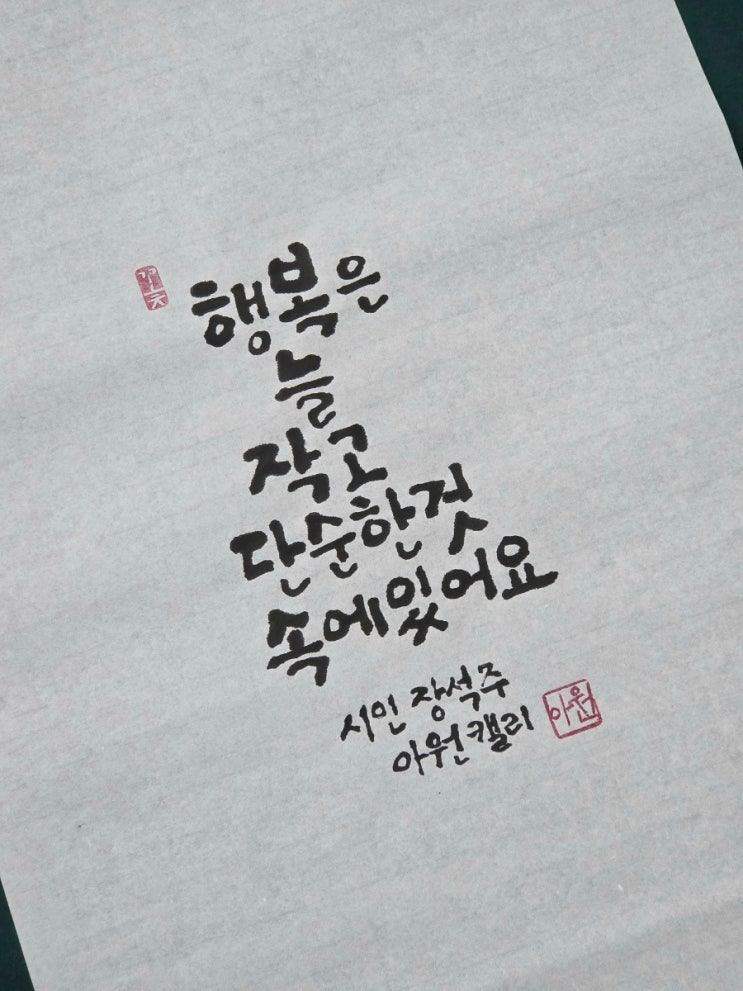 행복은
늘
작고
단순한것
속에있어요
시인 장석주
아원캘리
아원